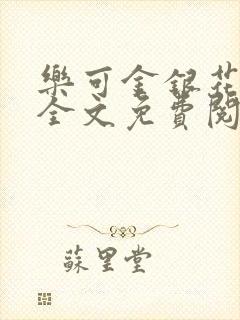 樂可金銀花
全文免費閱
蘇里堂